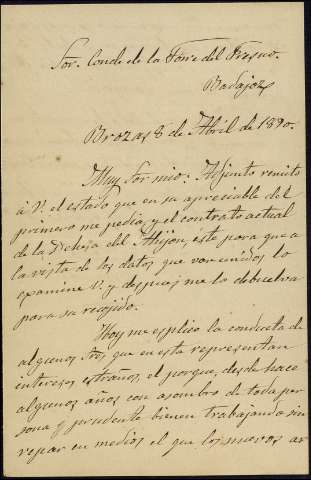 Sor. Conde de la Torre del Fresno.
Badajoz
Brozas 8 de Abril de 1890.
Muy Sor mio: Adjunto remito
á V. el estado que en su apreciable del
primero me pedia, y el contrato actual
de la Dehesa del Ahijon, éste para que a
la vista de los datos que van unidos lo
examine V. y despues me lo debuelva
para su recojido.
Hoy me esplico la conducta de
algunos Sres que en esta representan
intereses estraños, el porque, desde hace
algunos años con asombro de toda per
sona y prudente bienen trabajando sin
repar en medios el que los nuevos ar